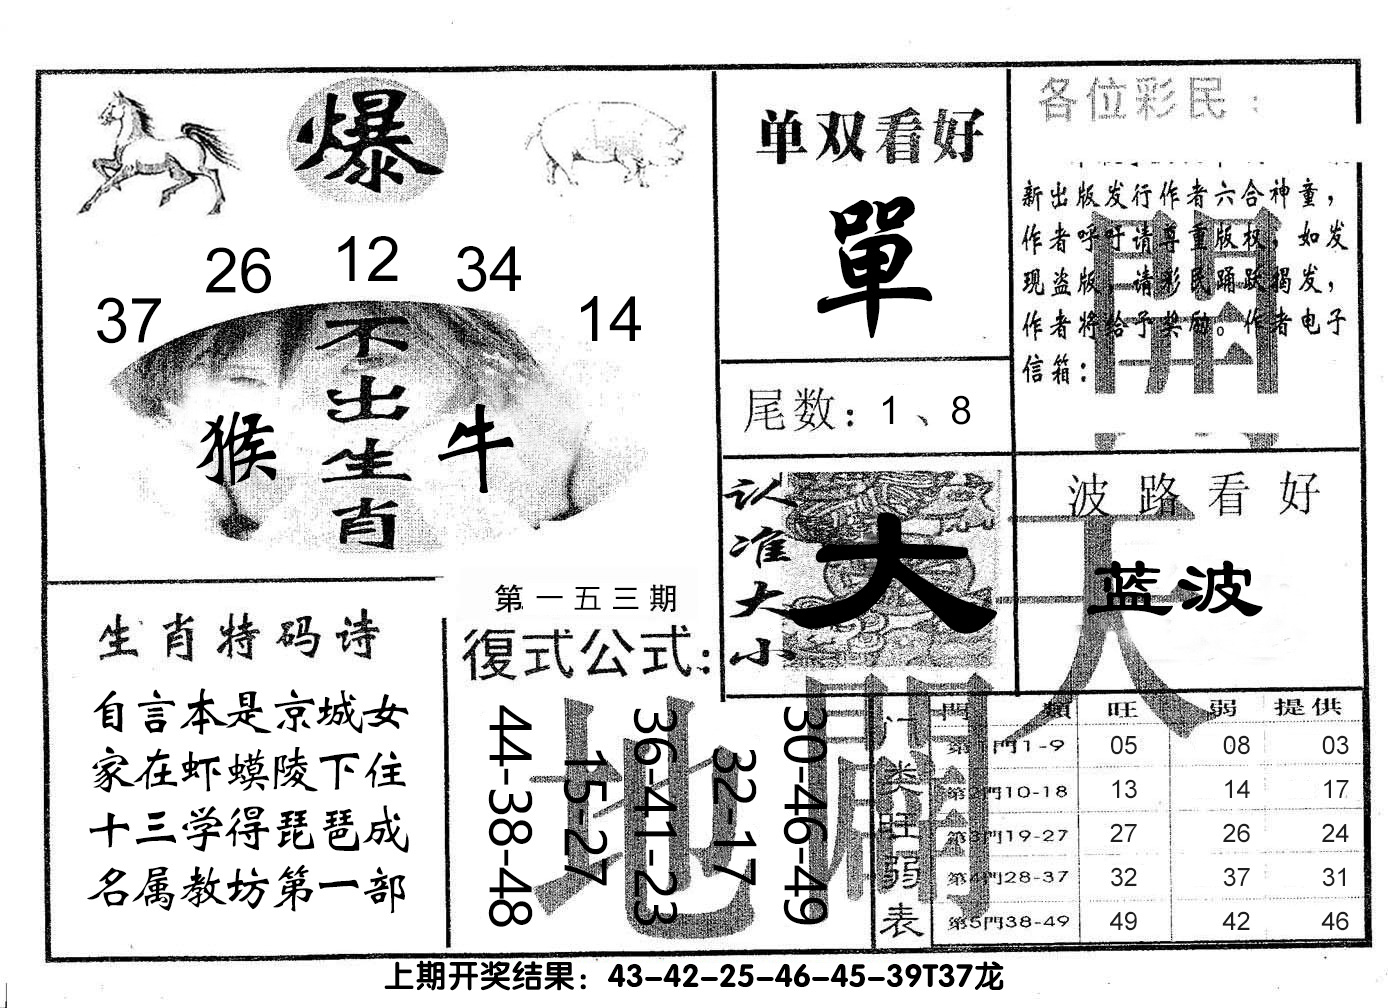 爆
37 26 12 34 14
不出生肖
猴 牛
单双看好
單
尾数：1、8
认准大小
大
各位彩民：
新出版发行作者六合神童，
作者呼吁请尊重版权，如发
现盗版，请彩民踊跃揭发，
作者将给予奖励。作者电子
信箱：
波路看好
蓝波
生肖特码诗
自言本是京城女
家在虾蟆陵下住
十三学得琵琶成
名属教坊第一部
第一五三期
復式公式：
44-38-48
15-27
36-41-23
32-17
30-46-49
天
地
門类旺弱表
門類 旺 弱 提供
第1門1-9 05 08 03
第2門10-18 13 14 17
第3門19-27 27 26 24
第4門28-37 32 37 31
第5門38-49 49 42 46
上期开奖结果：43-42-25-46-45-39T37龙